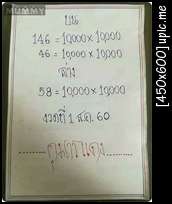 MUMMY
บน
146 = 10,000 x 10,000
46 = 10,000 x 10,000
ล่าง
58 = 10,000 x 10,000
งวดที่ 1 ส.ค. 60
กุมารแดง
[450x600] upic.me